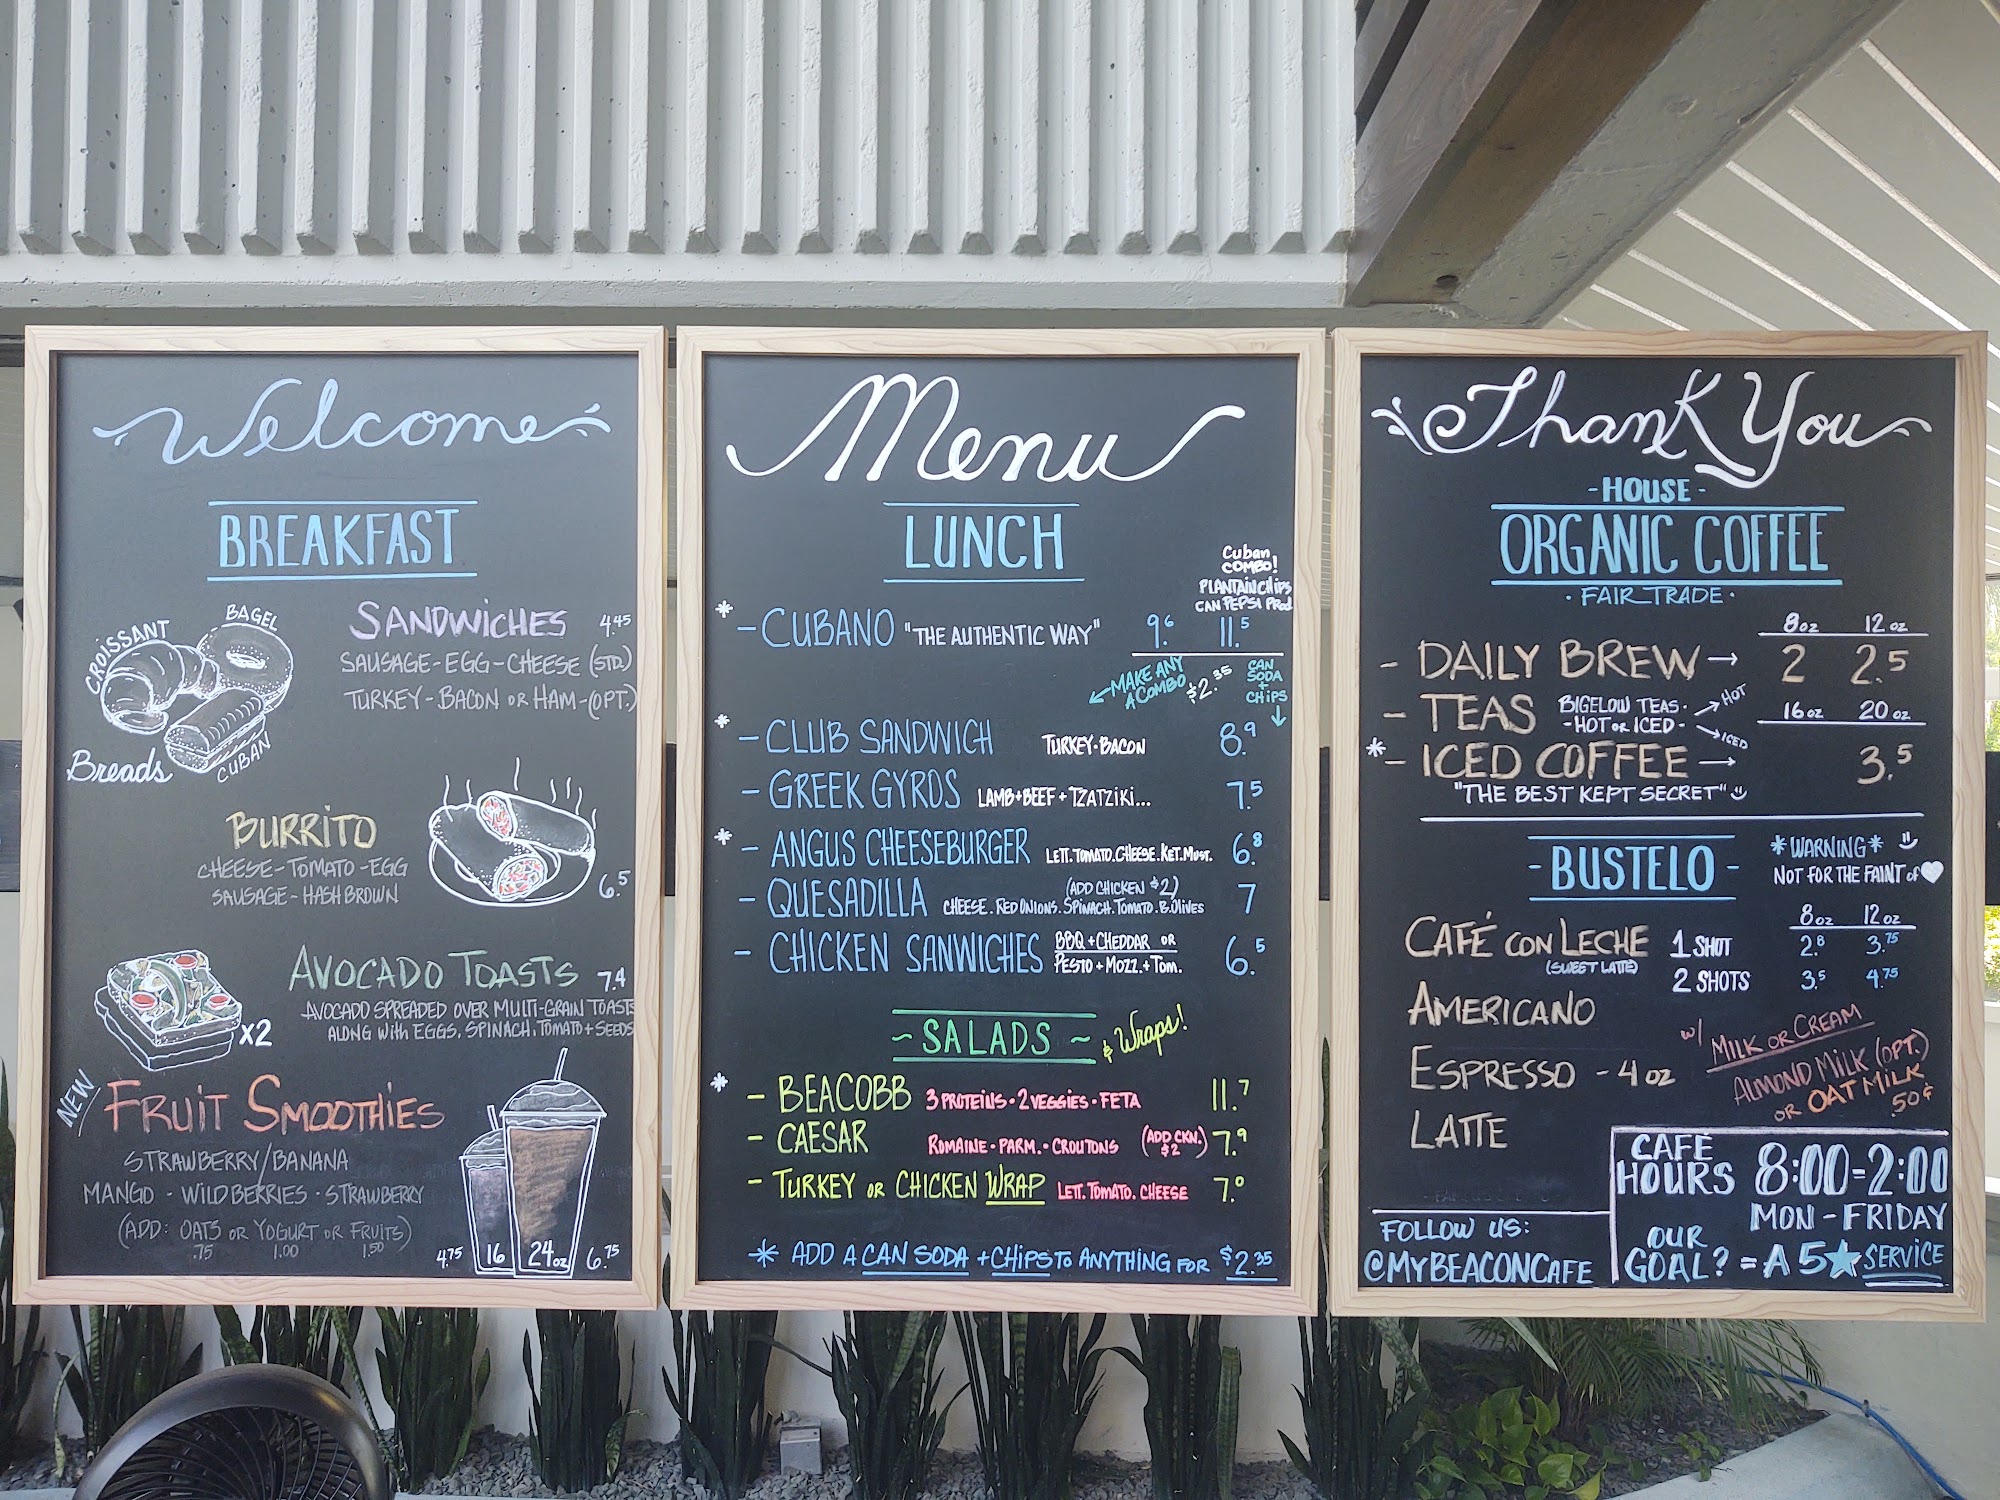 Welcome
BREAKFAST
CROISSANT
BAGEL
CUBAN
Breads
SANDWICHES 4.45
SAUSAGE-EGG-CHEESE (STD.)
TURKEY-BACON OR HAM-(OPT.)
BURRITO
CHEESE-TOMATO-EGG
SAUSAGE-HASH BROWN
6.5
AVOCADO TOASTS 7.4
AVOCADO SPREADED OVER MULTI-GRAIN TOASTS
ALONG WITH EGGS, SPINACH, TOMATO + SEEDS
X2
NEW
FRUIT SMOOTHIES
STRAWBERRY/BANANA
MANGO - WILDBERRIES - STRAWBERRY
(ADD: OATS OR YOGURT OR FRUITS)
.75 1.00 1.50
4.75 16 24oz 6.75
Menu
LUNCH
Cuban
COMBO!
PLANTAIN CHIPS
CAN PEPSI Prod
* - CUBANO "THE AUTHENTIC WAY" 9.6 11.5
MAKE ANY
A COMBO $2.35
CAN
SODA
+
CHIPS
* - CLUB SANDWICH TURKEY·BACON 8.9
- GREEK GYROS LAMB+BEEF+TZATZIKI... 7.5
* - ANGUS CHEESEBURGER LETT.TOMATO.CHEESE.KET.MUST. 6.8
- QUESADILLA (ADD CHICKEN $2) 7
CHEESE. RED ONIONS. SPINACH. TOMATO. B.OLIVES
- CHICKEN SANWICHES BBQ+CHEDDAR OR 6.5
PESTO+MOZZ.+TOM.
~ SALADS ~ & Wraps!
* - BEACOBB 3 PROTEINS·2 VEGGIES·FETA 11.7
- CAESAR ROMAINE·PARM.·CROUTONS (ADD CKN. $2) 7.9
- TURKEY OR CHICKEN WRAP LETT. TOMATO. CHEESE 7.0
* ADD A CAN SODA + CHIPS TO ANYTHING FOR $2.35
Thank You
- HOUSE -
ORGANIC COFFEE
· FAIR TRADE ·
8oz 12oz
- DAILY BREW → 2 2.5
- TEAS BIGELOW TEAS· → HOT
- HOT OR ICED - → ICED
16oz 20oz
* - ICED COFFEE → 3.5
"THE BEST KEPT SECRET"
- BUSTELO -
*WARNING*
NOT FOR THE FAINT of
8oz 12oz
CAFÉ CON LECHE 1 SHOT 2.8 3.75
(SWEET LATTE) 2 SHOTS 3.5 4.75
AMERICANO
ESPRESSO - 4oz
LATTE
w/ MILK OR CREAM
ALMOND MILK (OPT.)
OR OAT MILK
.50¢
CAFÉ
HOURS 8:00-2:00
MON - FRIDAY
OUR
GOAL? = A 5★ SERVICE
FOLLOW US:
@MYBEACONCAFE